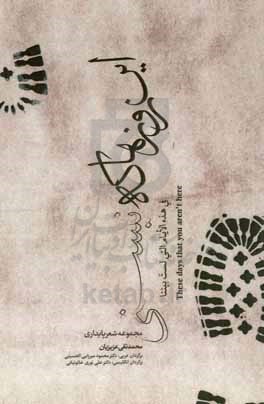 این روزها که نیستی
في هذه الأيام التي لست بيننا
These days that you aren't here
مجموعه شعر پایداری
محمدتقی عزیزیان
برگردان عربی: دکتر محمود میرزایی الحسینی
برگردان انگلیسی: دکتر علی نوری خاتونبانی
ketab